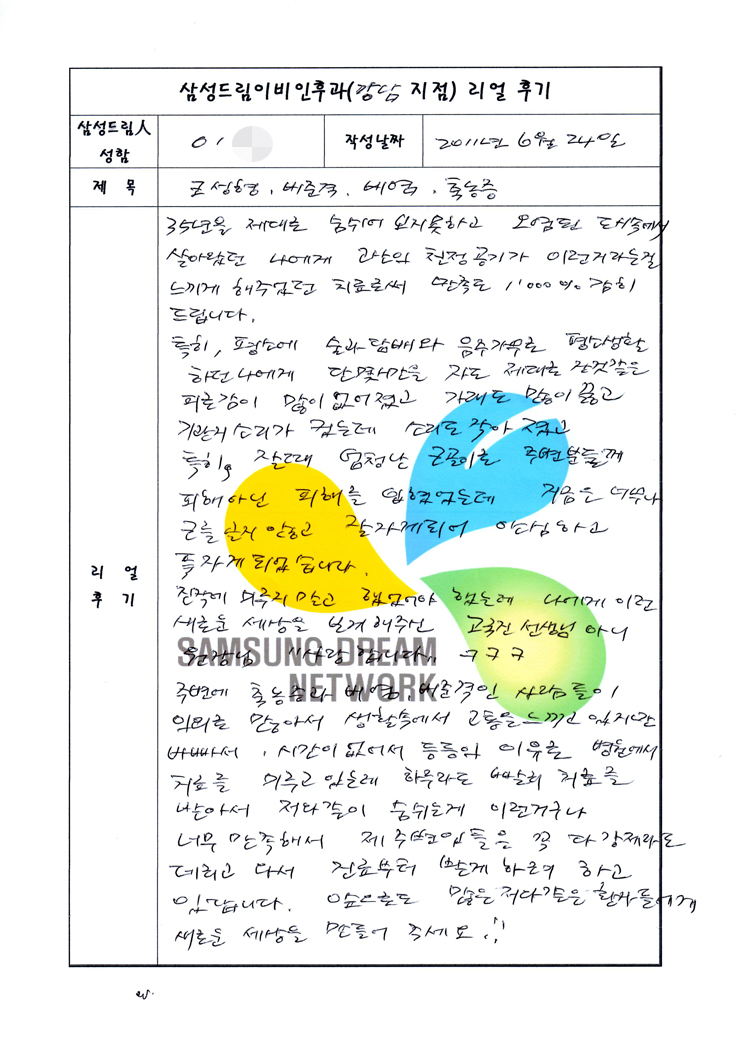 삼성드림이비인후과(강남 지점) 리얼 후기
삼성드림人 성함
이
작성날짜
2011년 6월 24일
제 목
코성형, 비중격, 비염, 축농증
리 얼 후 기
35년을 제대로 숨쉬어 보지못하고 오염된 도시속에서
살아왔던 나에게 강산의 청정공기가 이런거라는걸
느끼게 해주었던 치료로써 만족도 1,000% 감히
드립니다.
특히, 평소에 술과담배와 음주가무로 평상생활
하던나에게 단 몇시간을 자도 제대로 잔것같은
피로감이 많이 없어졌고 가래도 많이 끓고
기관지소리가 컸는데 소리도 작아 졌고
특히, 잘때 엄청난 코골이로 주변분들께
피해아닌 피해를 입혔었는데 지금은 너무나
코를 골지 않고 잘자게되어 안심하고
푹자게 되었습니다.
진작에 미루지 말고 했었어야 했는데 나에게 이런
새로운 세상을 보게해주신 선생님 아니
원장님 "사랑합니다" ㅋㅋㅋ
주변에 축농증과 비염, 비중격인 사람들이
의외로 많아서 생활속에서 고통을느끼고 있지만
바빠서, 시간이없어서 등등의 이유로 병원에서
치료를 미루고 있는데 하루라도 빨리 치료를
받아서 저와같이 숨쉬는게 이런거구나
너무 만족해서 제 주변인들은 꼭 다 강제라도
데리고 와서 진료부터 받게 하려 하고
있답니다. 앞으로도 많은 저와같은 환자들에게
새로운 세상을 만들어 주세요 !!
SAMSUNG DREAM
NETWORK